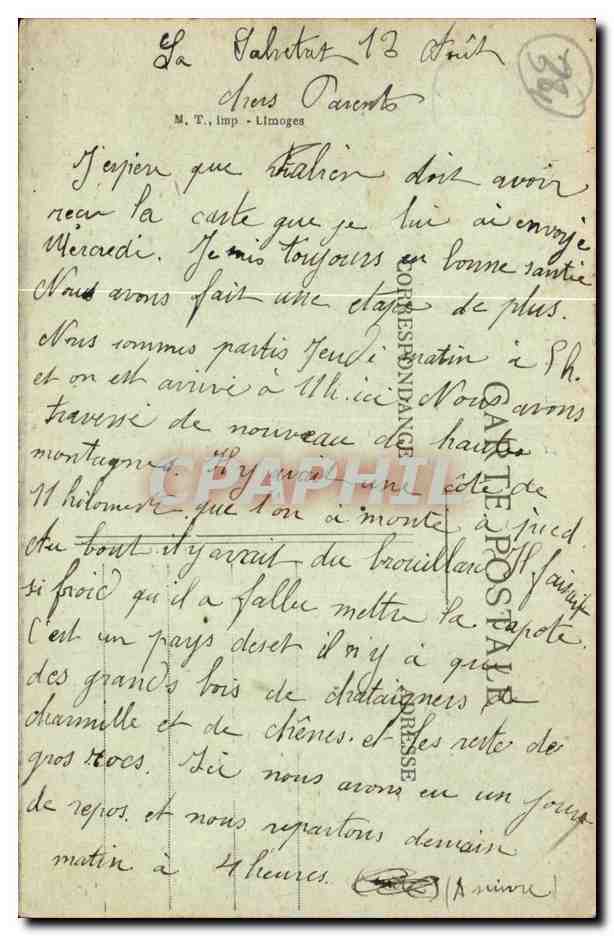 La Salvetat 13 Août
284
chers Parents
M. T., imp - Limoges
J'espère que doit avoir
recu la carte que je lui ai envoyé
Mercredi. Je suis toujours en bonne santié
Nous avons fait une etape de plus.
Nous sommes partis Jeudi matin à 5h.
et on est arrivé à 11h. ici Nous avons
traversé de nouveau de hautes
montagnes. Il y avait une côte de
11 kilometre que l'on à monté à pied.
Au bout il y avait du brouillard Il faisait
si froid qu'il a fallu mettre la capote.
C'est un pays deset il n'y à que
des grands bois de chataigners de
charmille et de chênes. et les reste de
gros rocs. Ici nous avons eu un jour
de repos. et nous repartons demain
matin à 4 heures. (A suivre)
CORRESPONDANCE
CARTE POSTALE
ADRESSE
CPAPHIL